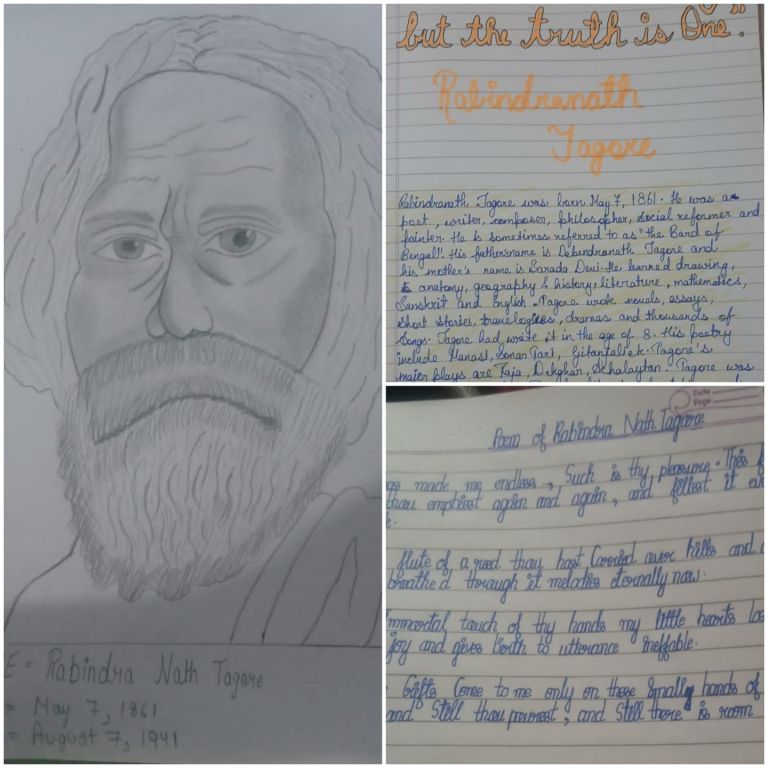 E = Rabindra Nath Tagore
= May 7, 1861
= August 7, 1941
but the truth is One".
Rabindranath
Tagore
Rabindranath Tagore was born May 7, 1861. He was a
poet, writer, composer, philosopher, social reformer and
painter. He is sometimes referred to as "the Bard of
Bengal". His father's name is Debendranath Tagore and
his mother's name is Sarada Devi. He learned drawing,
anatomy, geography & history, literature, mathematics,
Sanskrit and English. Tagore wrote novels, assays,
short stories, travelogues, dramas and thousands of
Songs. Tagore had write it in the age of 8. His poetry
include Manasi, Sonar Tari, Gitanjali etc. Tagore's
major plays are Raja, Dakghar, Achalayatan. Tagore was
Date
Page
Poem of Rabindra Nath Tagore
made me endless, Such is thy pleasure. This
thou emptiest again and again, and fillest it
flute of a reed thou hast Carried over hills and
breathed through it melodies eternally new.
Immortal touch of thy hands my little hearts
joy and gives birth to utterance ineffable.
Gifts Come to me only on these Smally hands of
and Still thou pourest, and Still there is room